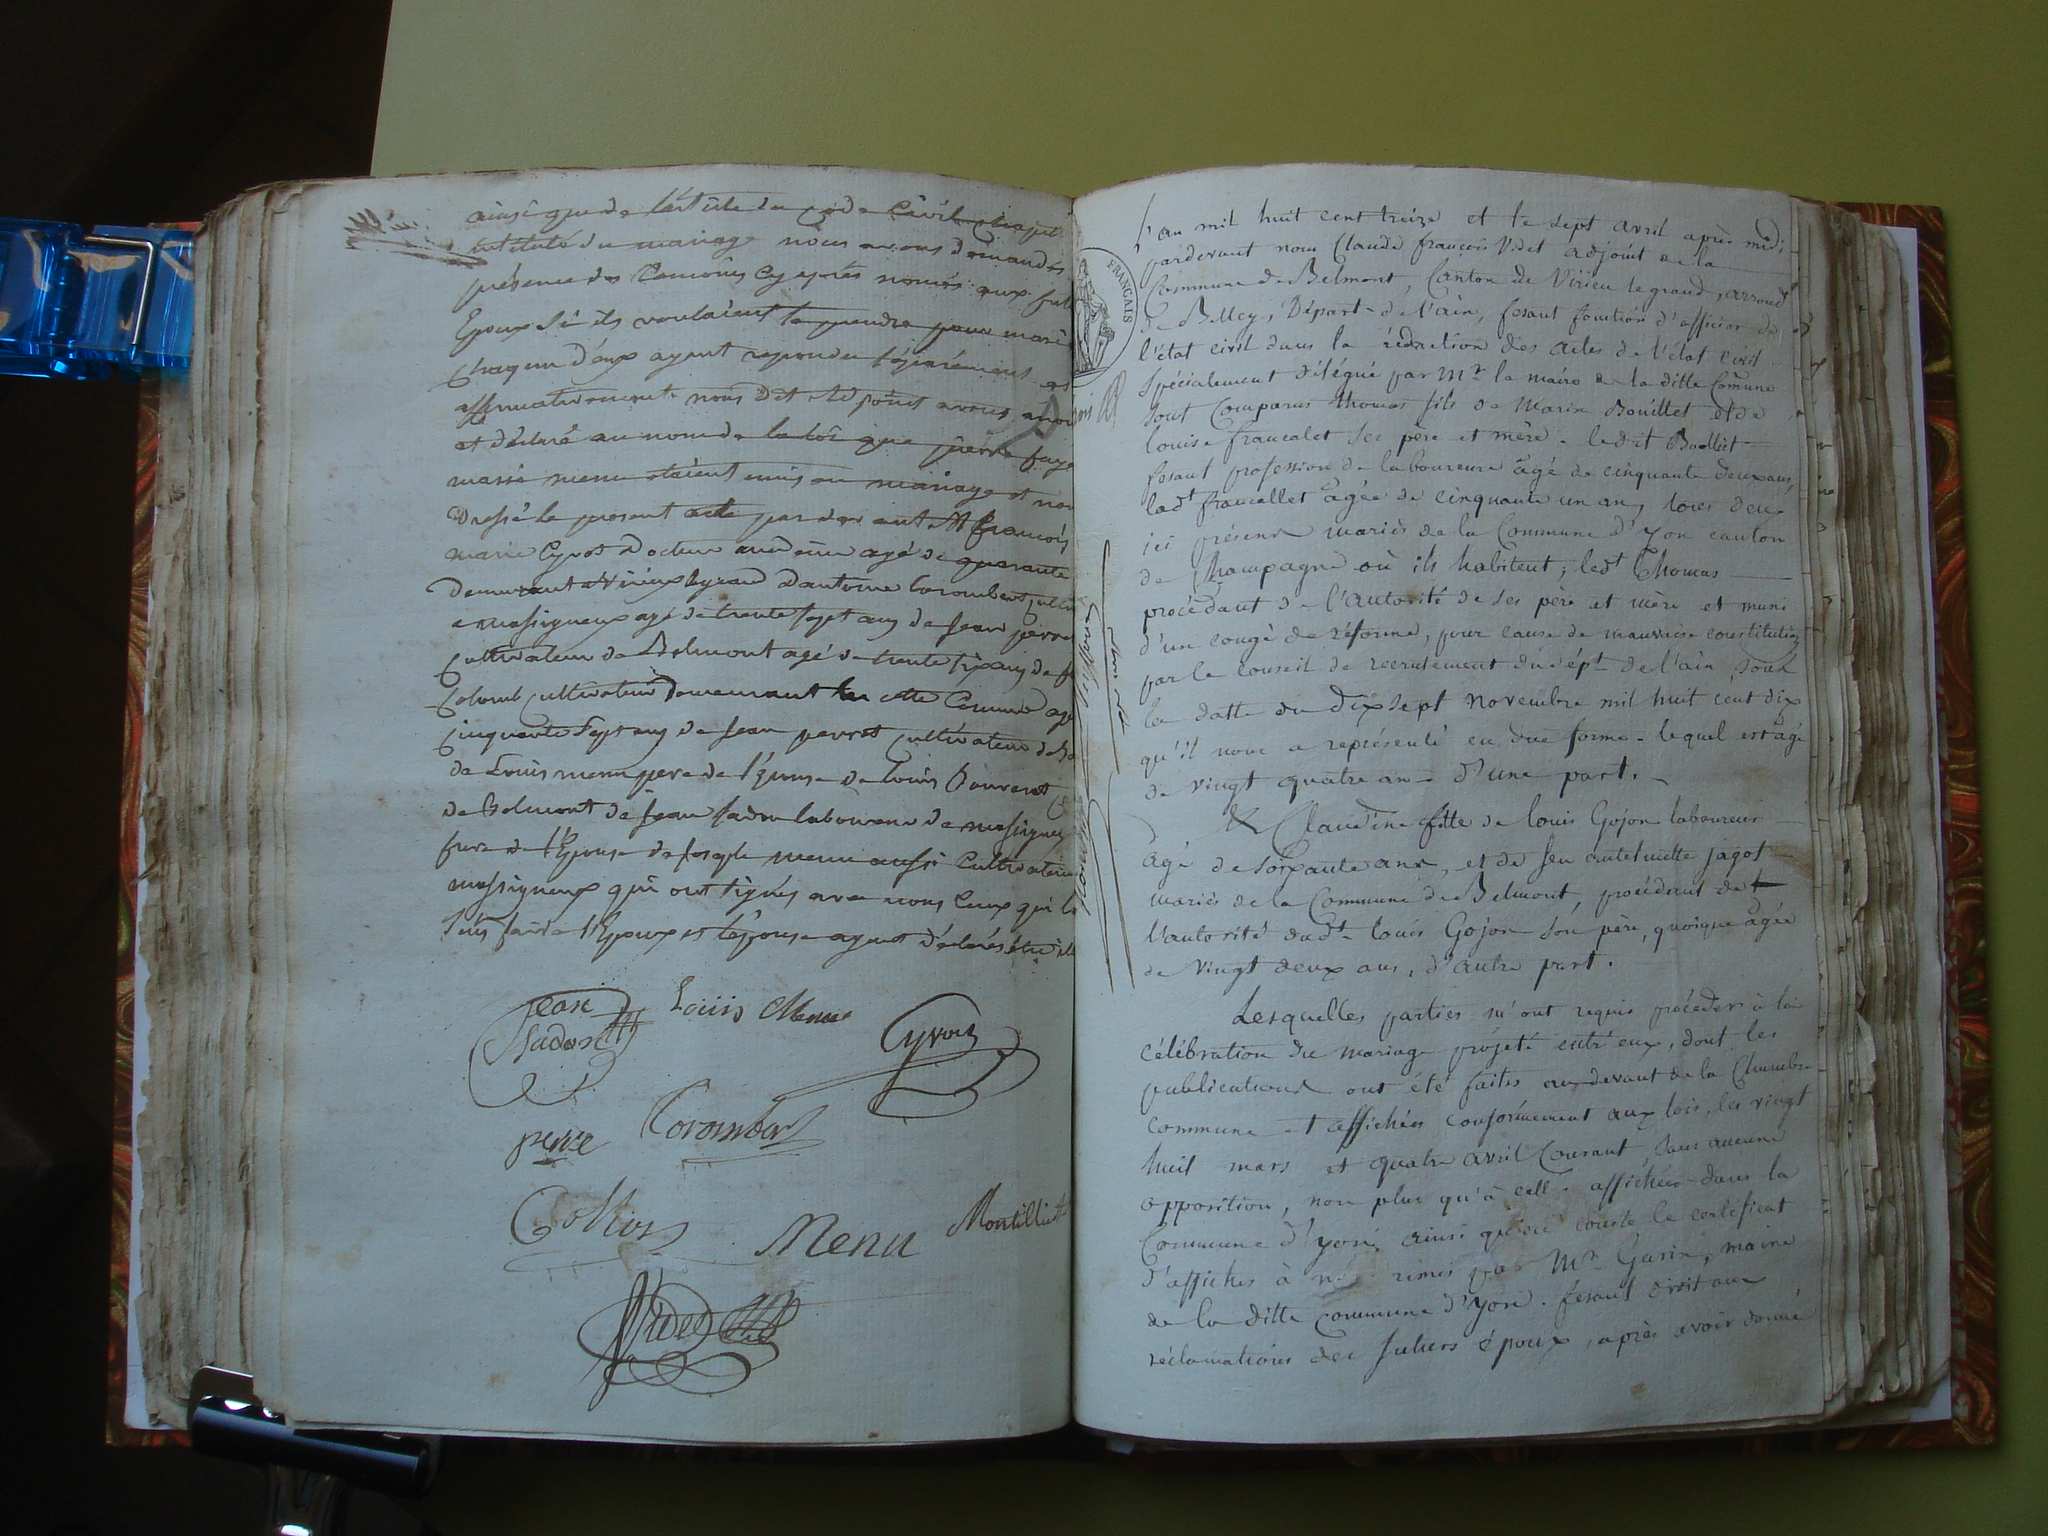 ainsi que de l'article du code Civil Chapit
intitulé du mariage nous avons demandés
présence des temoins cy après només aux fut
Epoux si ils voulaient se prendre pour mari
Chaqun d'eux ayant repondu séparément et
affirmativement nous dit adjoint avons
et déclaré au nom de la loi que pierre faye
marie menu etaient unis en mariage et nou
Dressé le present acte par devant M françois
marie Cyvoct Docteur medecin agé de quarante
demeurant a Virieux legrand d'antoine Corombert
a massignieux agé de trente sept ans de Jean perret
Cultivateur de Belmont agé de trente six ans de
Colomb cultivateur demeurant en cette Commune agé
Cinquante sept ans de Jean perret cultivateur de
de Louis menu pere de l'Epouse de Louis
de Belmont de Jean laboureur de massignieux
frere de l'Epouse de Joseph menu aussi Cultivateur
massignieux qui ont signés avec nous ceux qui
faire l'Epoux et l'épouse ayant déclarés
Jean
Louis Menu
Cyvoct
perret
Corombert
Menu
Montilliet
Videt
FRANÇAIS
L'an mil huit cent treize et le sept avril après midi
pardevant nous Claude françois Videt adjoint de la
Commune de Belmont, Canton de Virieu legrand, arrond
de Belley, Départ de l'ain, fesant fonction d'officier de
l'état civil dans la rédaction des actes de l'état civil
spécialement délégué par Mr le maire de la ditte Commune
sont comparus thomas fils de Marin Bouillet et de
louise francalet ses père et mère. ledit Bouillet
fesant profession de laboureure âgé de cinquante deux ans,
ladt francallet âgée de cinquante un an, tous deux
ici présens mariés de la Commune d'Yon canton
de Champagne où ils habitent; ledt Thomas
procédant de l'autorité de ses père et mère et muni
d'un congé de réforme, pour cause de mauvaise constitution
par le conseil de recrutement du dépt de l'ain, sous
la datte du dix sept novembre mil huit cent dix
qu'il nous a représenté en due forme. lequel est agé
de vingt quatre ans d'une part.
& Claudine fille de louis Gojon laboureur
agé de soixante ans, et de feu anthelmette jagot
mariés de la Commune de Belmont, procédant de
l'autorité dudt louis Gojon son père, quoique âgée
de vingt deux ans, d'autre part.
Lesquelles parties m'ont requis procéder à la
célébration du mariage projeté entr'eux, dont les
publications ont été faites au devant de la Chambre
commune et affichées conformément aux lois, les vingt
huit mars et quatre avril Courant, sans aucune
opposition, non plus qu'à celle affichée dans la
Commune d'yon, ainsi qu'il conste le certificat
d'affiches à nous remis par Mr Garin, maire
de la ditte commune d'Yon. fesant droit aux
réclamations des futurs époux, après avoir donné